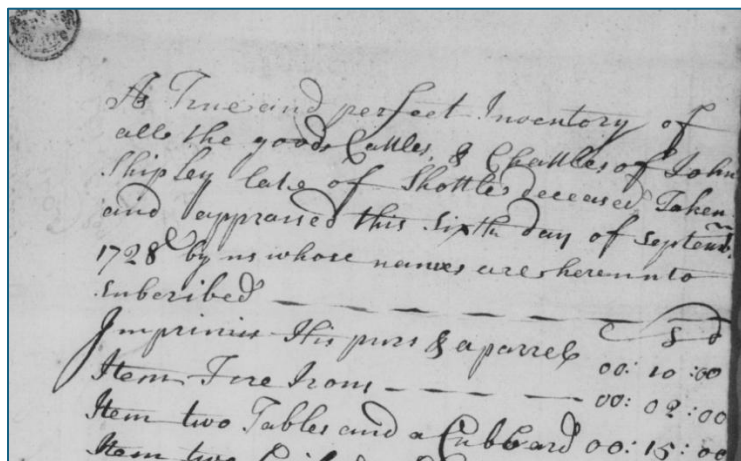 A True and perfect Inventory of
alls the goods Cattles, & Chattles of John
Shipley late of Shottle deceased Taken
and appraised this sixth day of Septemb.
1728 by us whose names are hereunto
subcribed
£ S d
Imprimis His purs & aparrel 00: 10 :00
Item Fire Irons 00: 02 :00
Item two Tables and a Cubbard 00: 15: 00
Item two